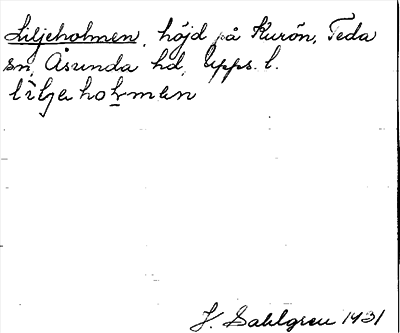 Liljeholmen, höjd på Kurön, Teda
sn, Åsunda hd, Upps. l.
lìljeholmen
J. Sahlgren 1931